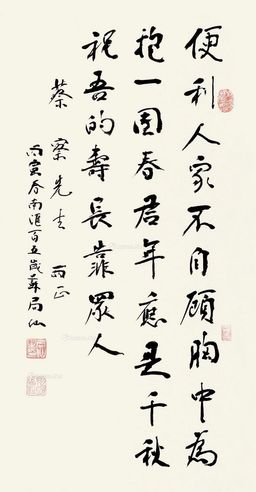 便利人家不自顧胸中為
抱一團春君年應是千秋
祝吾的壽長靠眾人
蔡先生正
丙寅春南匯百五歲蘇局仙